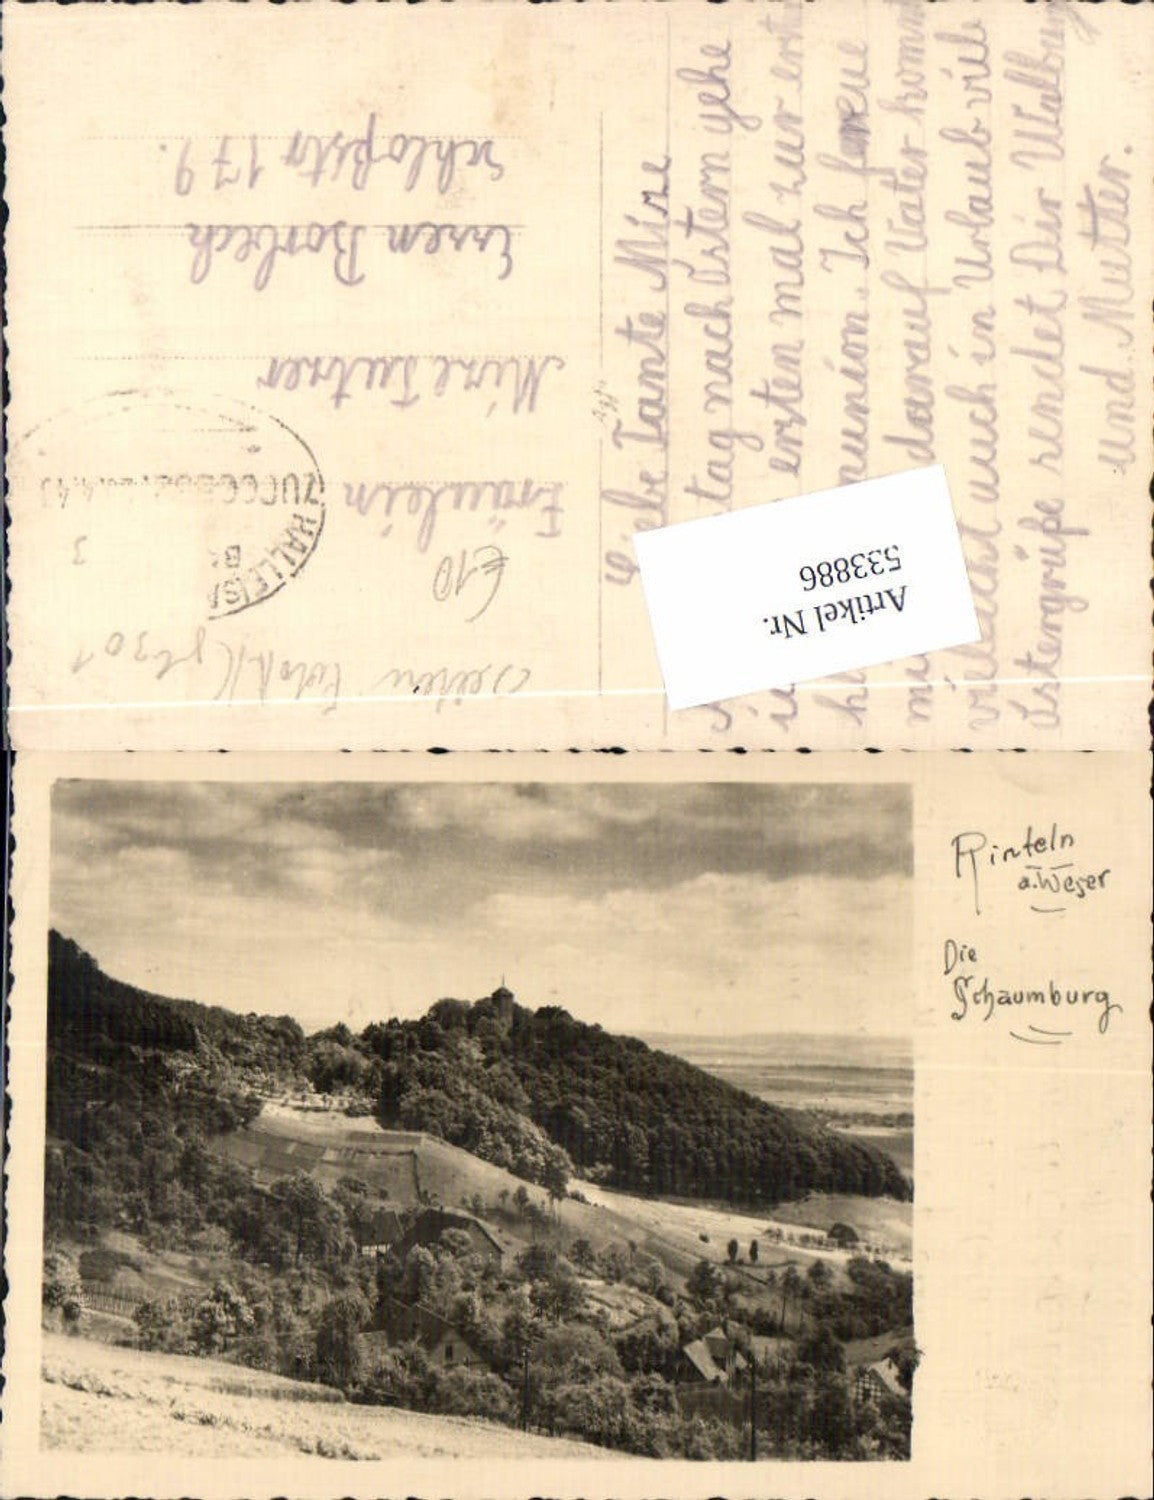 Liebe Tante Mize
tag nach Ostern gehe
ersten mal zur erst
munion. Ich freue
darauf Vater kommt
vielleicht auch in Urlaub viele
Ostergrüße sendet Dir Walburg
und Mutter.
Fräulein
Mize
Essen Borbeck
Schloßstr 179.
€10
3
Artikel Nr.
533886
Rinteln
a. Weser
Die
Schaumburg